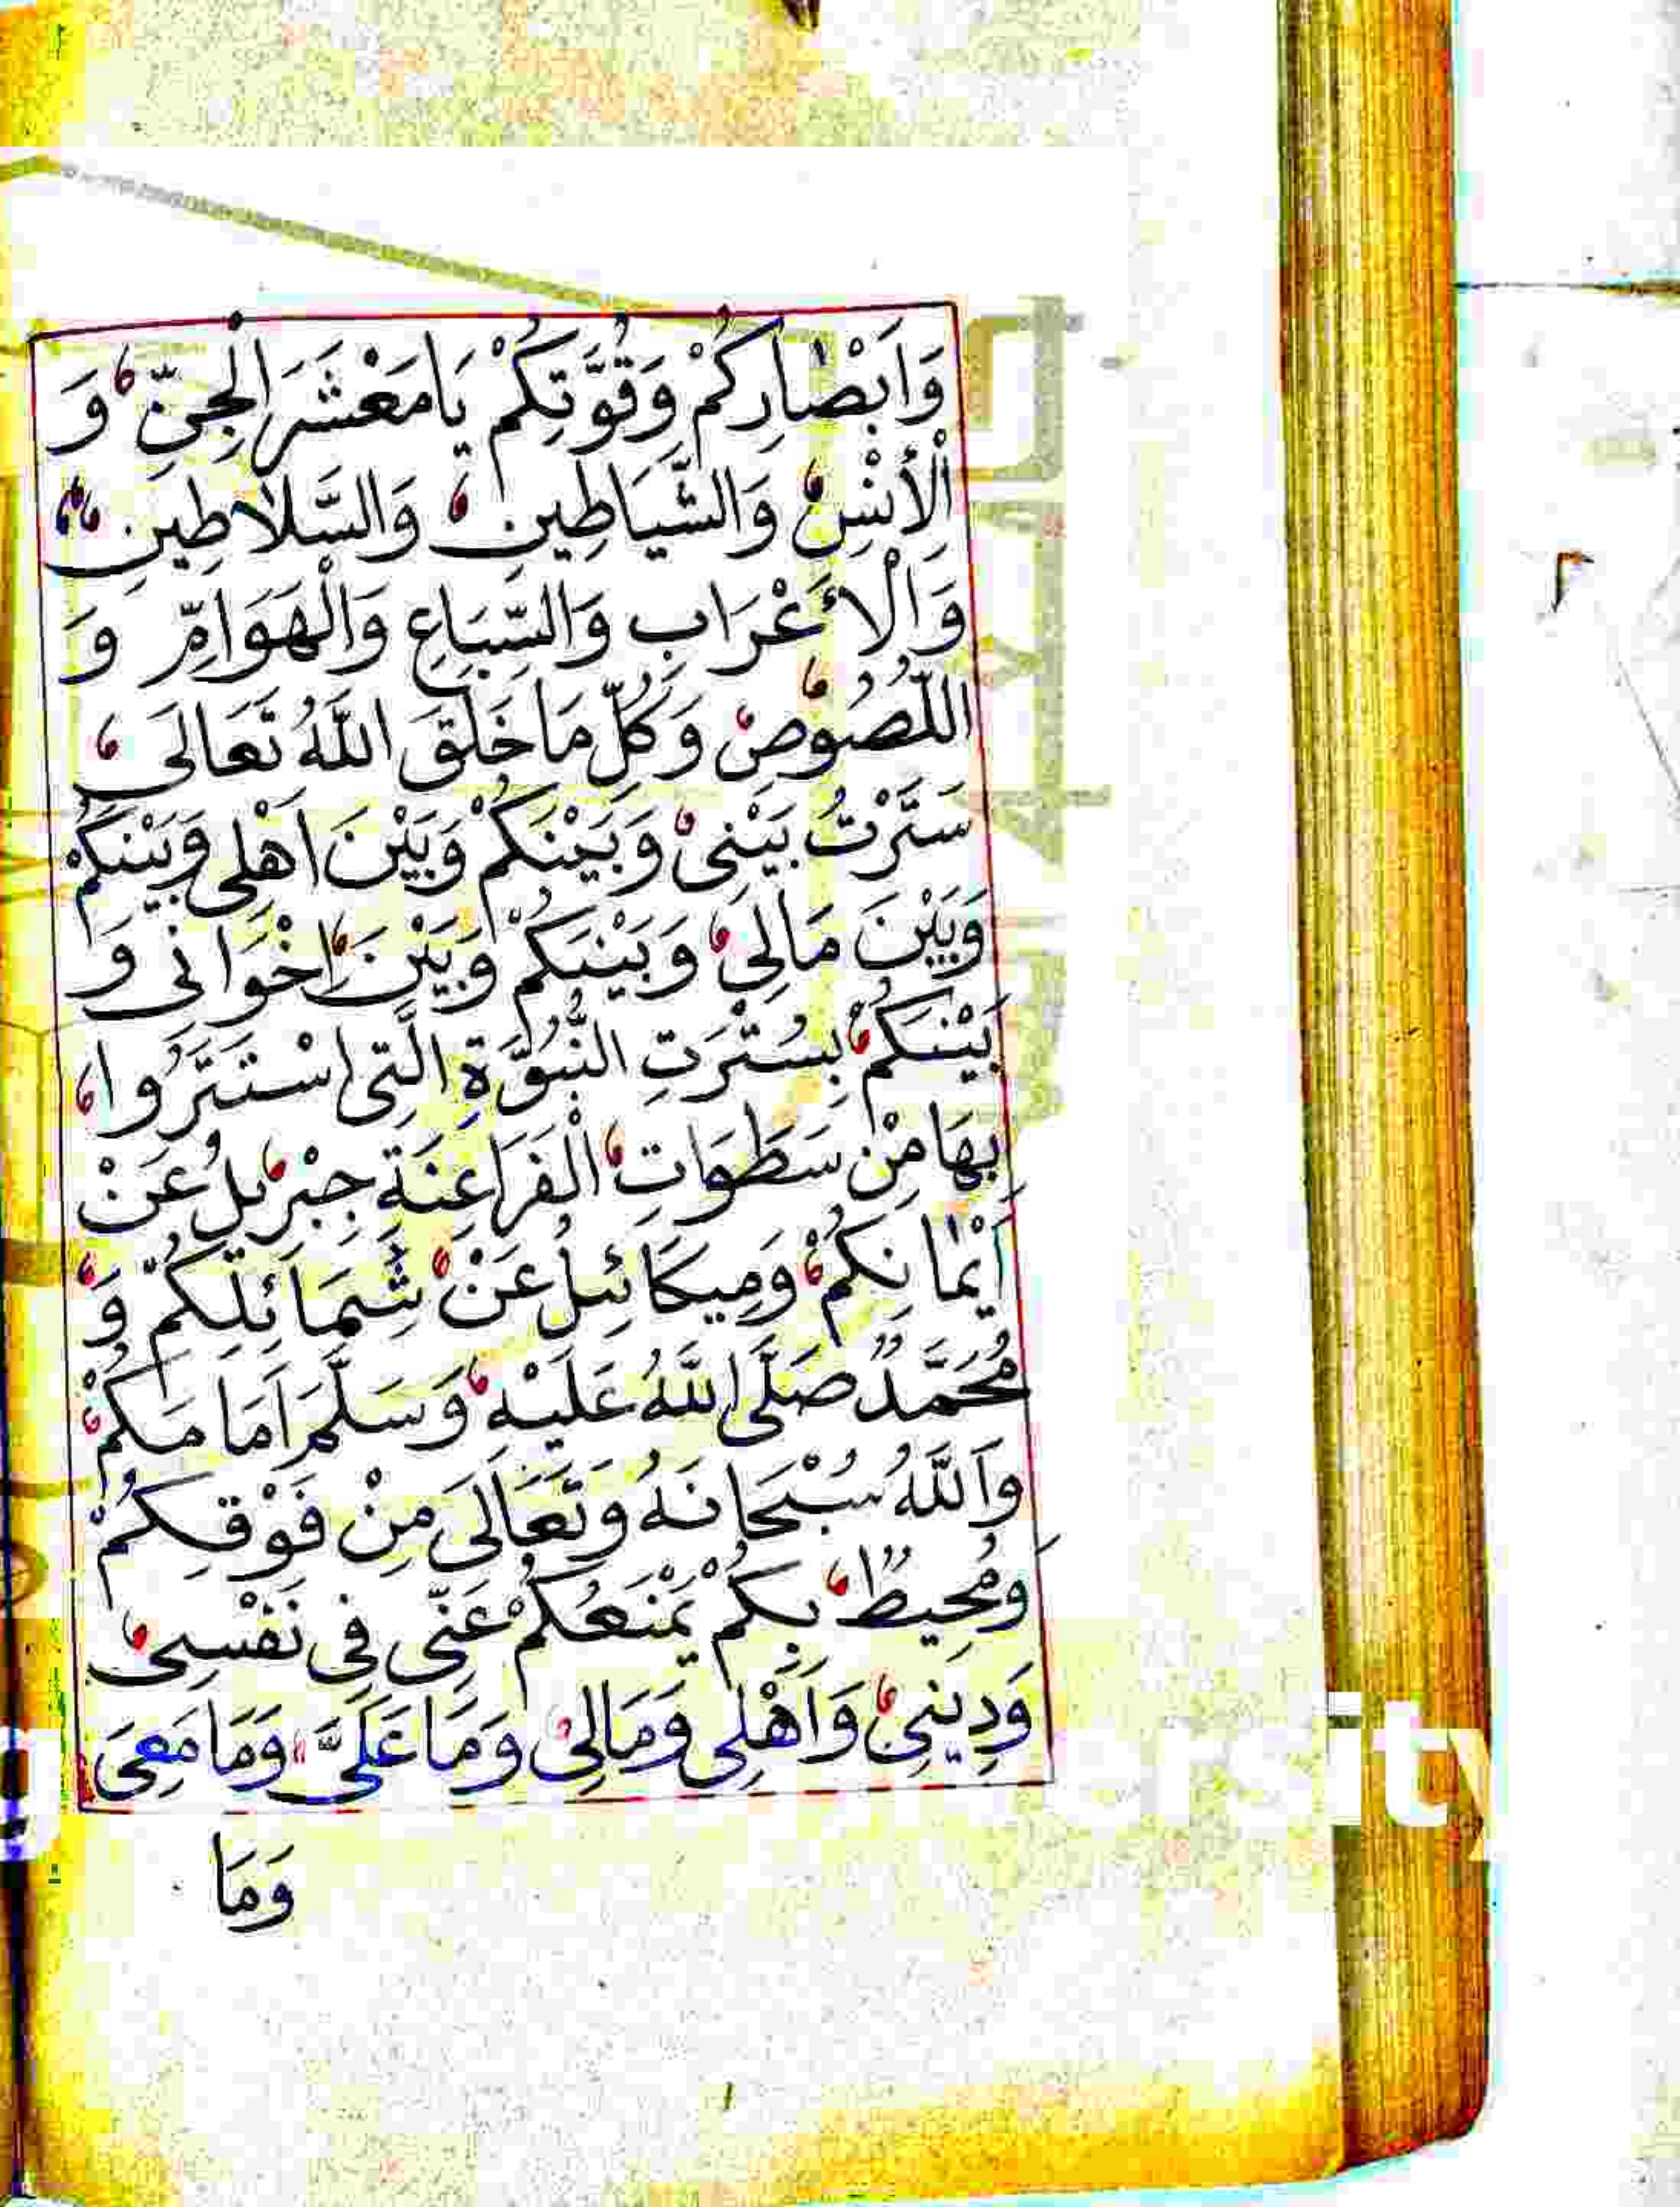 وَاَبْصَارِكُمْ وَقُوَّتِكُمْ يَا مَعْشَرَ الْجِنِّ وَ
الْأِنْسِ وَالشَّيَاطِينِ وَالسَّلَاطِينِ
وَالْاَعْرَابِ وَالسِّبَاعِ وَالْهَوَامِّ وَ
اللُّصُوصِ وَكُلِّ مَا خَلَقَ اللَّهُ تَعَالَى
سَتَّرْتُ بَيْنِى وَبَيْنَكُمْ وَبَيْنَ اَهْلِى وَبَيْنَكُمْ
وَبَيْنَ مَالِى وَبَيْنَكُمْ وَبَيْنَ اِخْوَانِى وَ
بَيْنَكُمْ بِسُتْرَتِ النُّبُوَّةِ الَّتِى اسْتَتَرُوا
بِهَا مِنْ سَطَوَاتِ الْفَرَاعِنَةِ جِبْرِيلُ عَنْ
اَيْمَانِكُمْ وَمِيكَائِيلُ عَنْ شِمَائِلِكُمْ وَ
مُحَمَّدٌ صَلَّى اللَّهُ عَلَيْهِ وَسَلَّمَ اَمَامَكُمْ
وَاَللَّهُ سُبْحَانَهُ وَتَعَالَى مِنْ فَوْقِكُمْ
وَمُحِيطٌ بِكُمْ يَمْنَعُكُمْ عَنِّى فِى نَفْسِى
وَدِينِى وَاَهْلِى وَمَالِى وَمَا عَلَىَّ وَمَا مَعِىَ
وَمَا